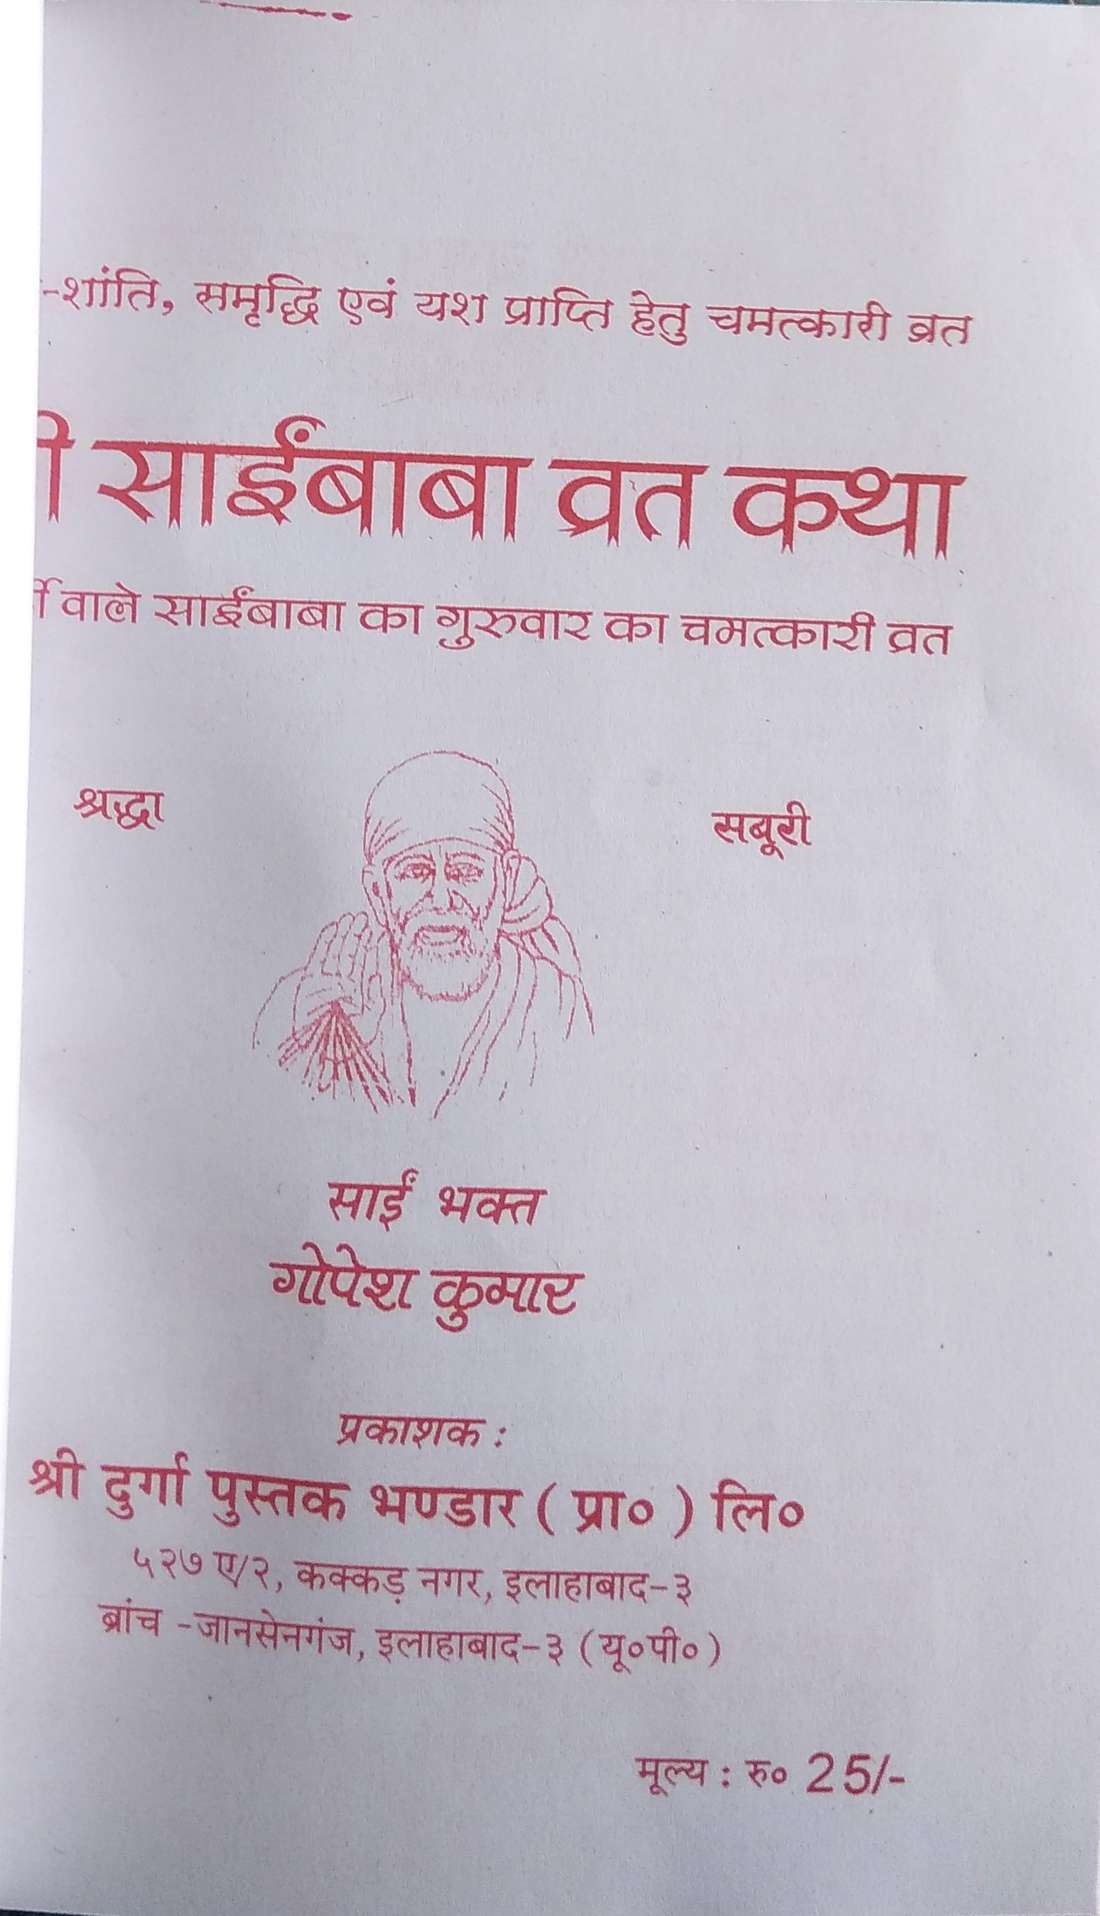 -शांति, समृद्धि एवं यश प्राप्ति हेतु चमत्कारी व्रत
साईंबाबा व्रत कथा
वाले साईंबाबा का गुरुवार का चमत्कारी व्रत
श्रद्धा
सबूरी
साईं भक्त
गोपेश कुमार
प्रकाशक :
श्री दुर्गा पुस्तक भण्डार ( प्रा० ) लि०
५२७ ए/२, कक्कड़ नगर, इलाहाबाद-३
ब्रांच -जानसेनगंज, इलाहाबाद-३ (यू०पी०)
मूल्य : रु० 25/-